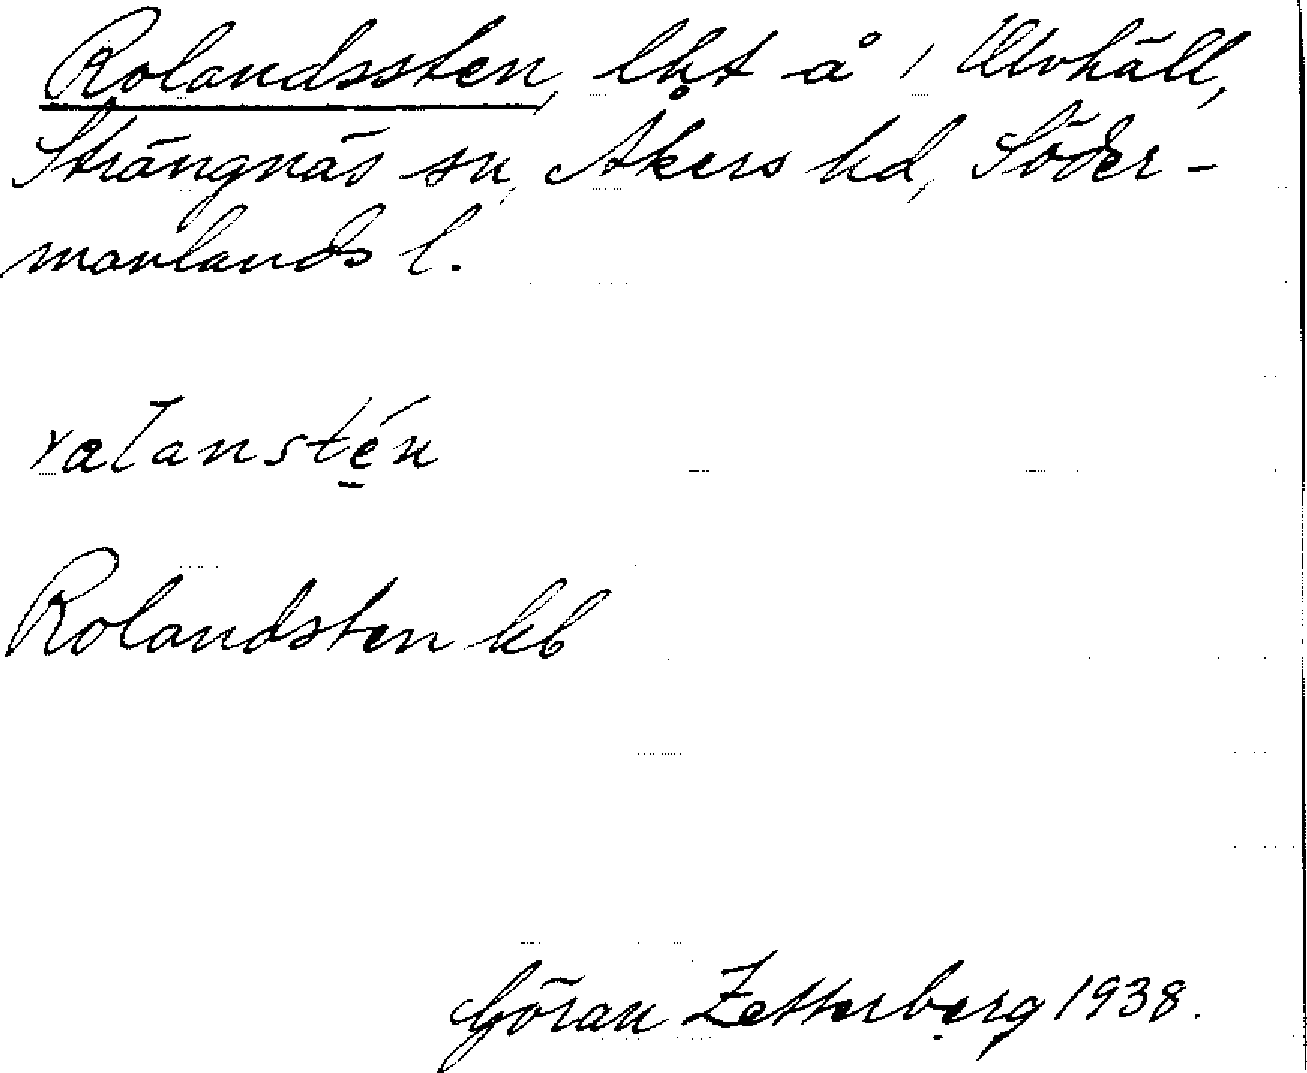 Rolandssten, lht å 1 Ulvhäll,
Strängnäs sn, Åkers hd, Söder-
manlands l.
Rolandsten kb
Göran Zetterberg 1938.